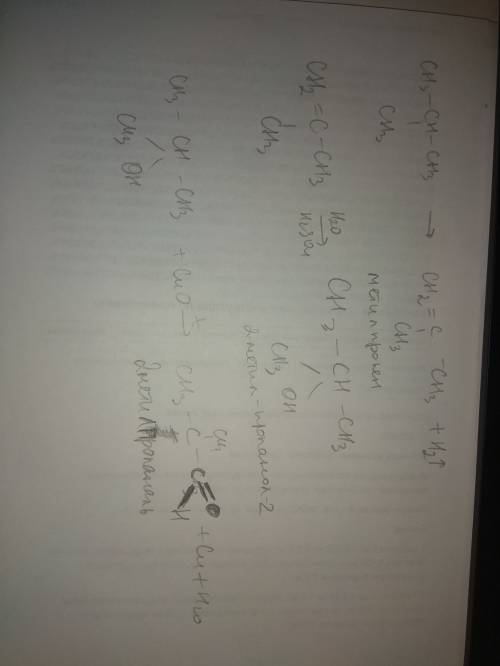 CH₃ – CH – CH₃ → CH₂ = C – CH₃ + H₂↑
CH₃ CH₃
метилпропен
CH₂ = C – CH₃ H₂O → H₂SO₄ CH₃ – CH – CH₃
CH₃ CH₃ OH
2 метил-пропанол-2
CH₃ – CH – CH₃ + CuO t → CH₃ – C – C = O + Cu + H₂O
CH₃ OH CH₃ H
2метилпропаналь